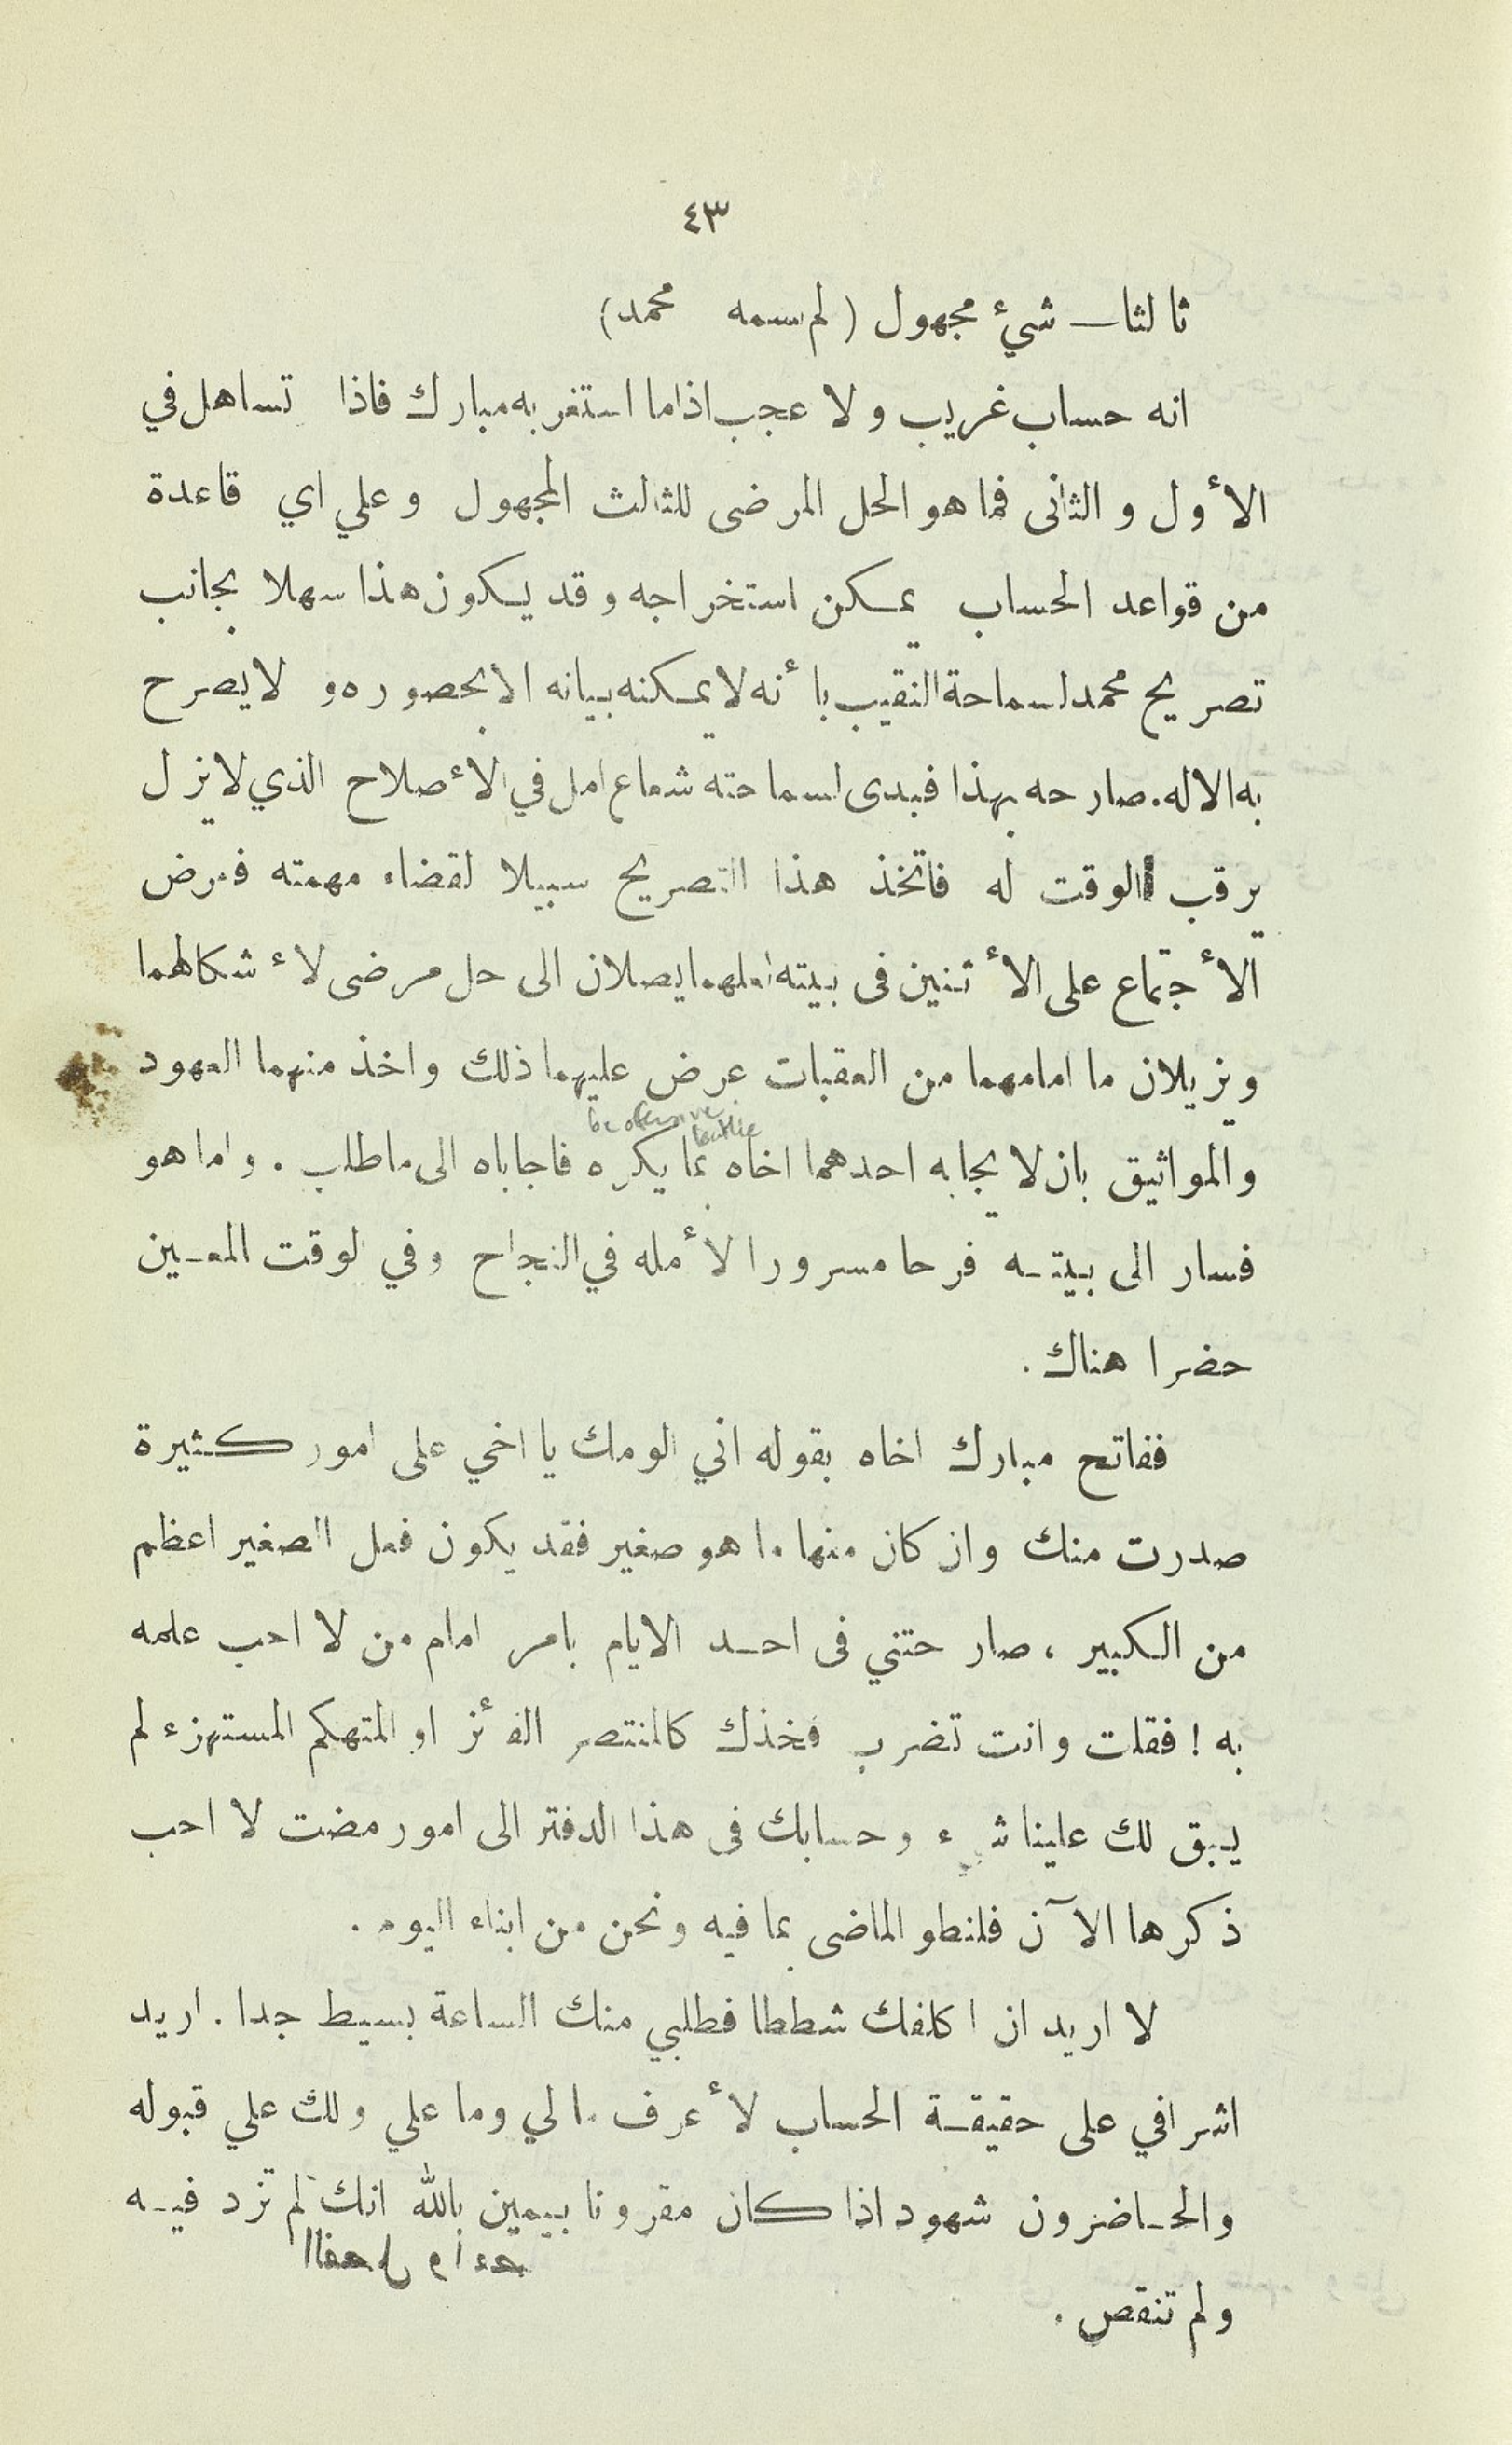 ٤٣
ثالثا — شيء مجهول (لم سمه محمد)
انه حساب غريب ولا عجب اذا ما استغربه مبارك فاذا تساهل في
الأول والثانى فما هو الحل المرضى للثالث المجهول وعلي اي قاعدة
من قواعد الحساب يمكن استخراجه وقد يكون هذا سهلا بجانب
تصريح محمد لسماحة النقيب بأنه لا يمكنه بيانه الا بحصوره و لا يصرح
به الا له. صارحه بهذا فبدى لسماحته شعاع امل في الأصلاح الذي لا يزل
يرقب الوقت له فاتخذ هذا التصريح سبيلا لقضاء مهمته فعرض
الأجتماع على الأثنين فى بيته لعلهما يصلان الى حل مرضى لأشكالهما
ويزيلان ما امامهما من العقبات عرض عليهما ذلك واخذ منهما العهود
والمواثيق بان لا يجابه احدهما اخاه بما يكره فاجاباه الى ما طلب. واما هو
فسار الى بيته فرحا مسرورا لأمله في النجاح وفي لوقت المعين
حضرا هناك.
ففاتح مبارك اخاه بقوله اني الومك يا اخي على امور كثيرة
صدرت منك وان كان منها ما هو صغير فقد يكون فعل الصغير اعظم
من الكبير، صارحتني فى احد الايام بامر امام من لا احب علمه
به! فقلت وانت تضرب فخذك كالمنتصر الفائز او المتهكم المستهزء لم
يبق لك علينا شيء وحسابك فى هذا الدفتر الى امور مضت لا احب
ذكرها الآن فلنطو الماضى بما فيه ونحن من ابناء اليوم.
لا اريد ان اكلفك شططا فطلبي منك الساعة بسيط جدا. اريد
اشرافي على حقيقة الحساب لأعرف مالي وما علي ولك علي قبوله
والحاضرون شهود اذا كان مقرونا بيمين بالله انك لم تزد فيه
ولم تنقص.